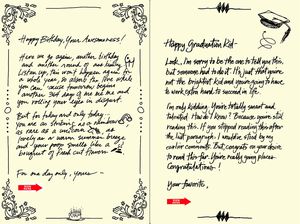 Happy Birthday, Your Awesomeness!
Here we go again, another birthday
and another round of me being
Listen up, this won't happen again for
a whole year, so absorb the love while
you can 'cause tomorrow begins
another 364 days of me and
you rolling your eyes in disgust.
But for today and only today -
you are as striking as a
as rare as a unicorn, as
lovely as a warm summer breeze
and your poop smells like a
bouquet of fresh cut flowers.
For one day only, yours -
Happy Graduation Kid-
Look, I'm sorry to be the one to tell you this,
but someone had to do it. It's just that you're
not the brightest kid and you're going to have
to work extra hard to succeed in life.
I'm only kidding. You're totally smart and
talented. How do I know? Because you're still
reading this. If you stopped reading this after
the last paragraph, I would've stood by my
earlier comments. But, congrats on your desire
to read this far. You're really going places.
Congratulations!
Your favorite,